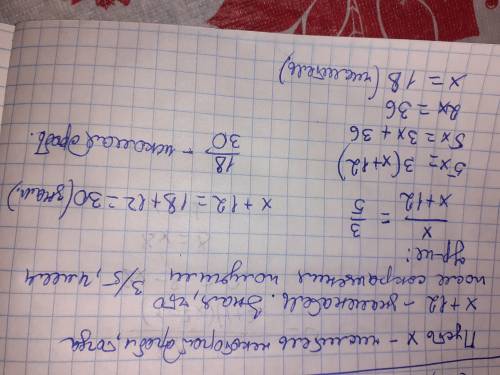 Пусть x - числитель некоторой дроби, тогда
x+12 - знаменатель. Зная, что
после сокращения получили 3/5, имеем
ур-ие:
x/x+12 = 3/5
5x = 3(x+12)
5x = 3x+36
2x = 36
x = 18 (числитель)
x+12 = 18+12 = 30 (знам.)
18/30 - искомая дробь.